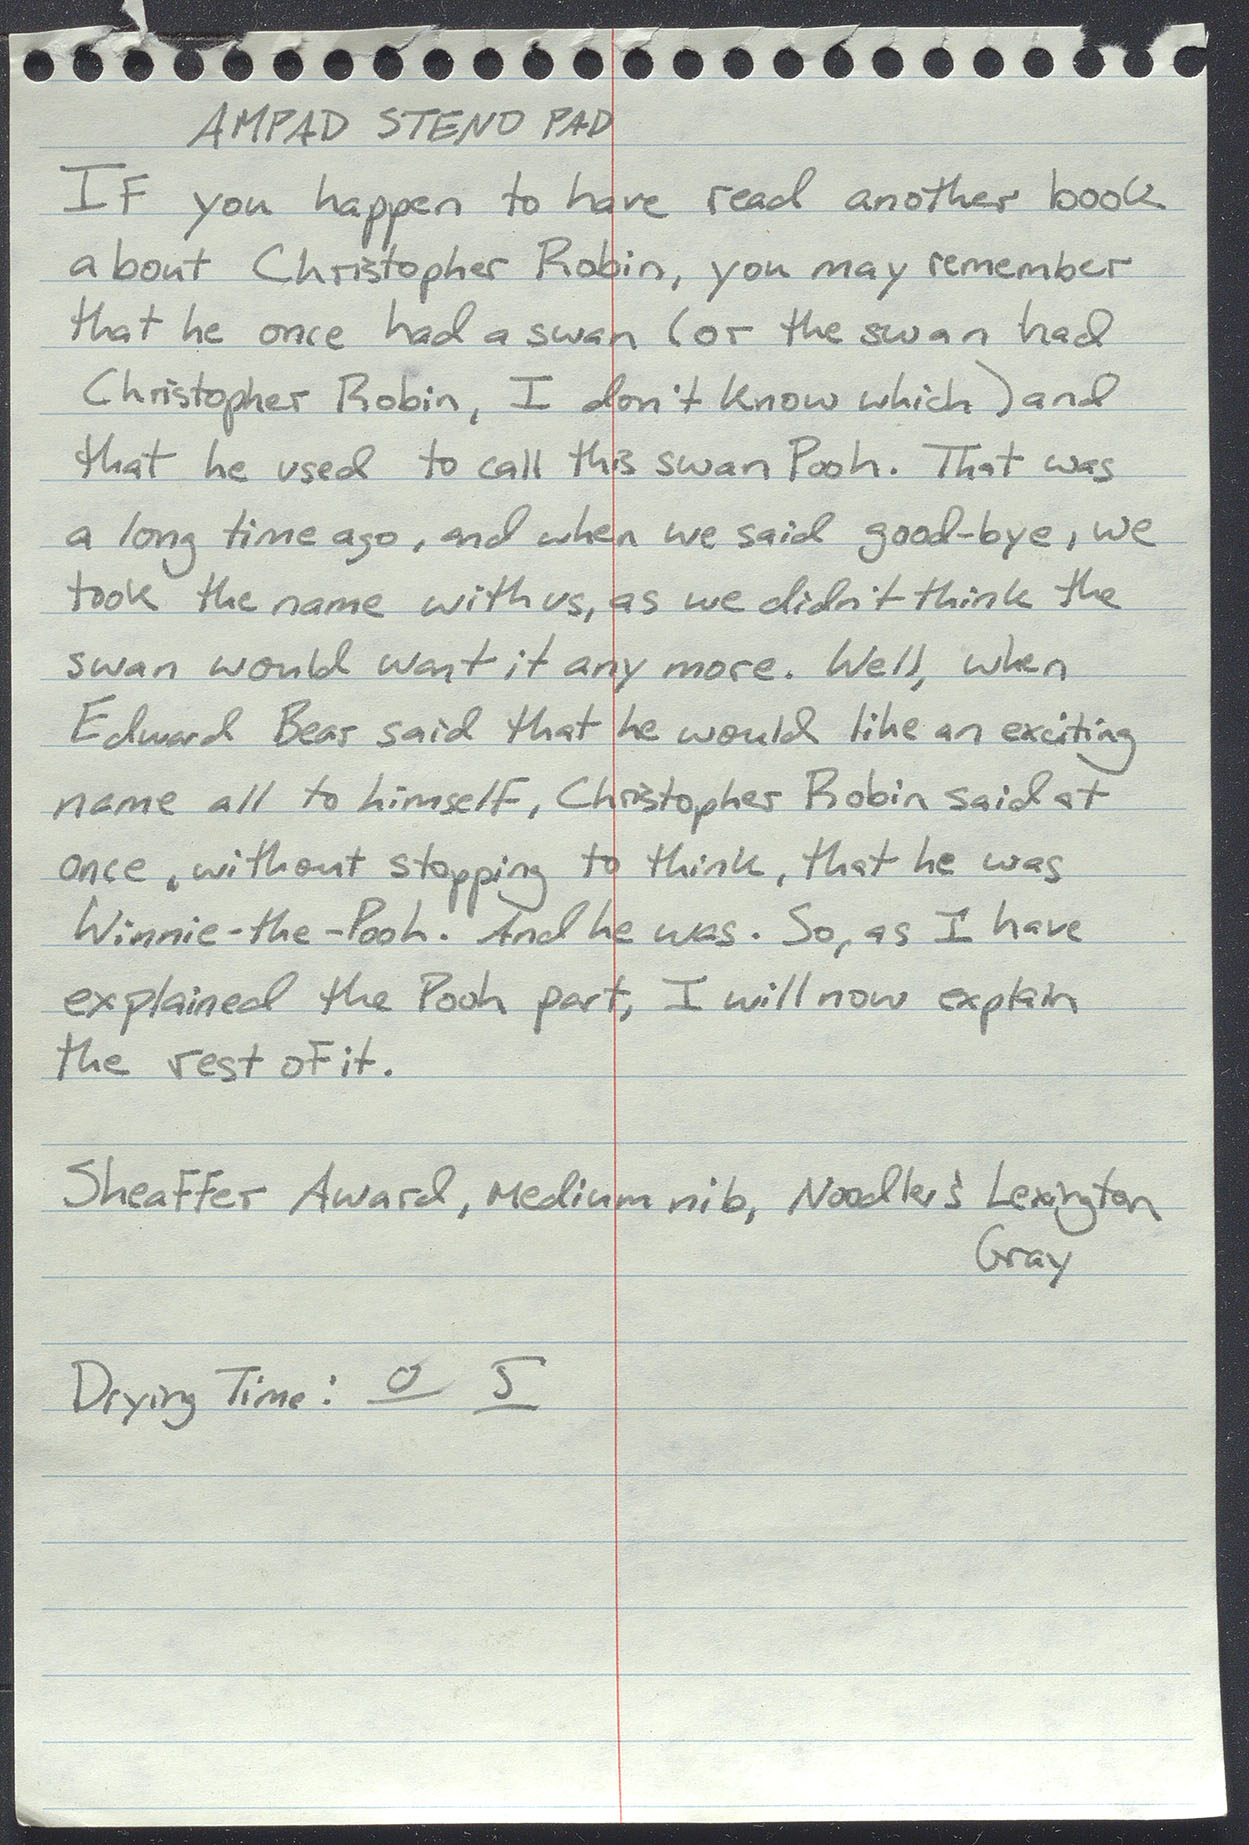 AMPAD STENO PAD
If you happen to have read another book
about Christopher Robin, you may remember
that he once had a swan (or the swan had
Christopher Robin, I don't know which) and
that he used to call this swan Pooh. That was
a long time ago, and when we said good-bye, we
took the name with us, as we didn't think the
swan would want it any more. Well, when
Edward Bear said that he would like an exciting
name all to himself, Christopher Robin said at
once, without stopping to think, that he was
Winnie-the-Pooh. And he was. So, as I have
explained the Pooh part, I will now explain
the rest of it.
Sheaffer Award, medium nib, Noodler's Lexington
Gray
Drying Time: 0 5